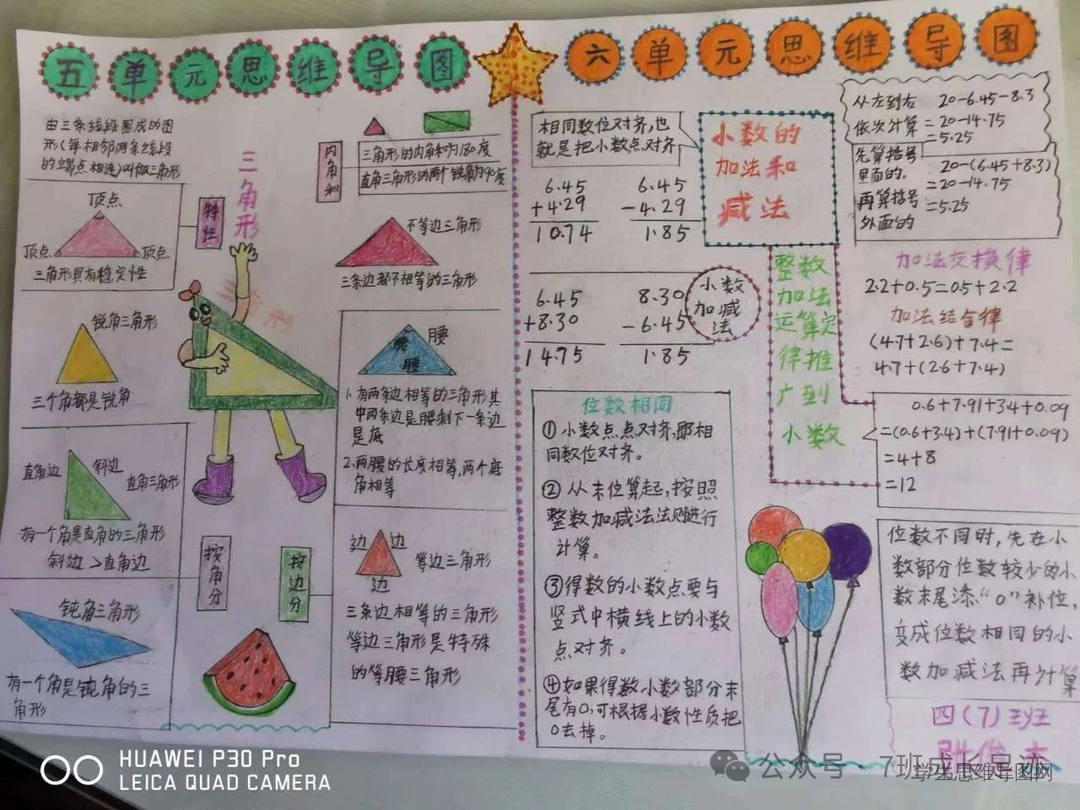 五单元思维导图
由三条线段围成的图
形(每相邻两条线段
的端点相连)叫做三角形
顶点
顶点
顶点
三角形具有稳定性
特性
三角形
内角和
三角形的内角和为180度
直角三角形的两个锐角为90度
不等边三角形
三条边都不相等的三角形
锐角三角形
三个角都是锐角
腰
腰
1.有两条边相等的三角形其
中两条边是腰剩下一条边
是底
2.两腰的长度相等,两个底
角相等
直角边
斜边
直角三角形
有一个角是直角的三角形
斜边>直角边
按角分
按边分
边
边
边
等边三角形
三条边相等的三角形
等边三角形是特殊
的等腰三角形
钝角三角形
有一个角是钝角的三
角形
六单元思维导图
相同数位对齐,也
就是把小数点对齐
小数的
加法和
减法
6.45
+4.29
10.74
6.45
-4.29
1.85
6.45
+8.30
14.75
8.30
-6.45
1.85
小数
加减
法
从左到右
依次计算
20-6.45-8.3
=20-14.75
=5.25
先算括号
里面的.
再算括号
外面的
20-(6.45+8.3)
=20-14.75
=5.25
整数
加法
运算定
律推
广到
小数
加法交换律
2.2+0.5=0.5+2.2
加法结合律
(4.7+2.6)+7.4=
4.7+(2.6+7.4)
0.6+7.91+3.4+0.09
=(0.6+3.4)+(7.91+0.09)
=4+8
=12
位数相同
①小数点点对齐,那相
同数位对齐。
②从末位算起,按照
整数加减法法则进行
计算。
③得数的小数点要与
竖式中横线上的小数
点对齐。
④如果得数小数部分末
尾有0,可根据小数性质把
0去掉。
位数不同时,先在小
数部分位数较少的小
数末尾添"0"补位,
变成位数相同的小
数加减法再计算
四(7)班
HUAWEI P30 Pro
LEICA QUAD CAMERA
公众号·7班成长足迹
学生思维导图网